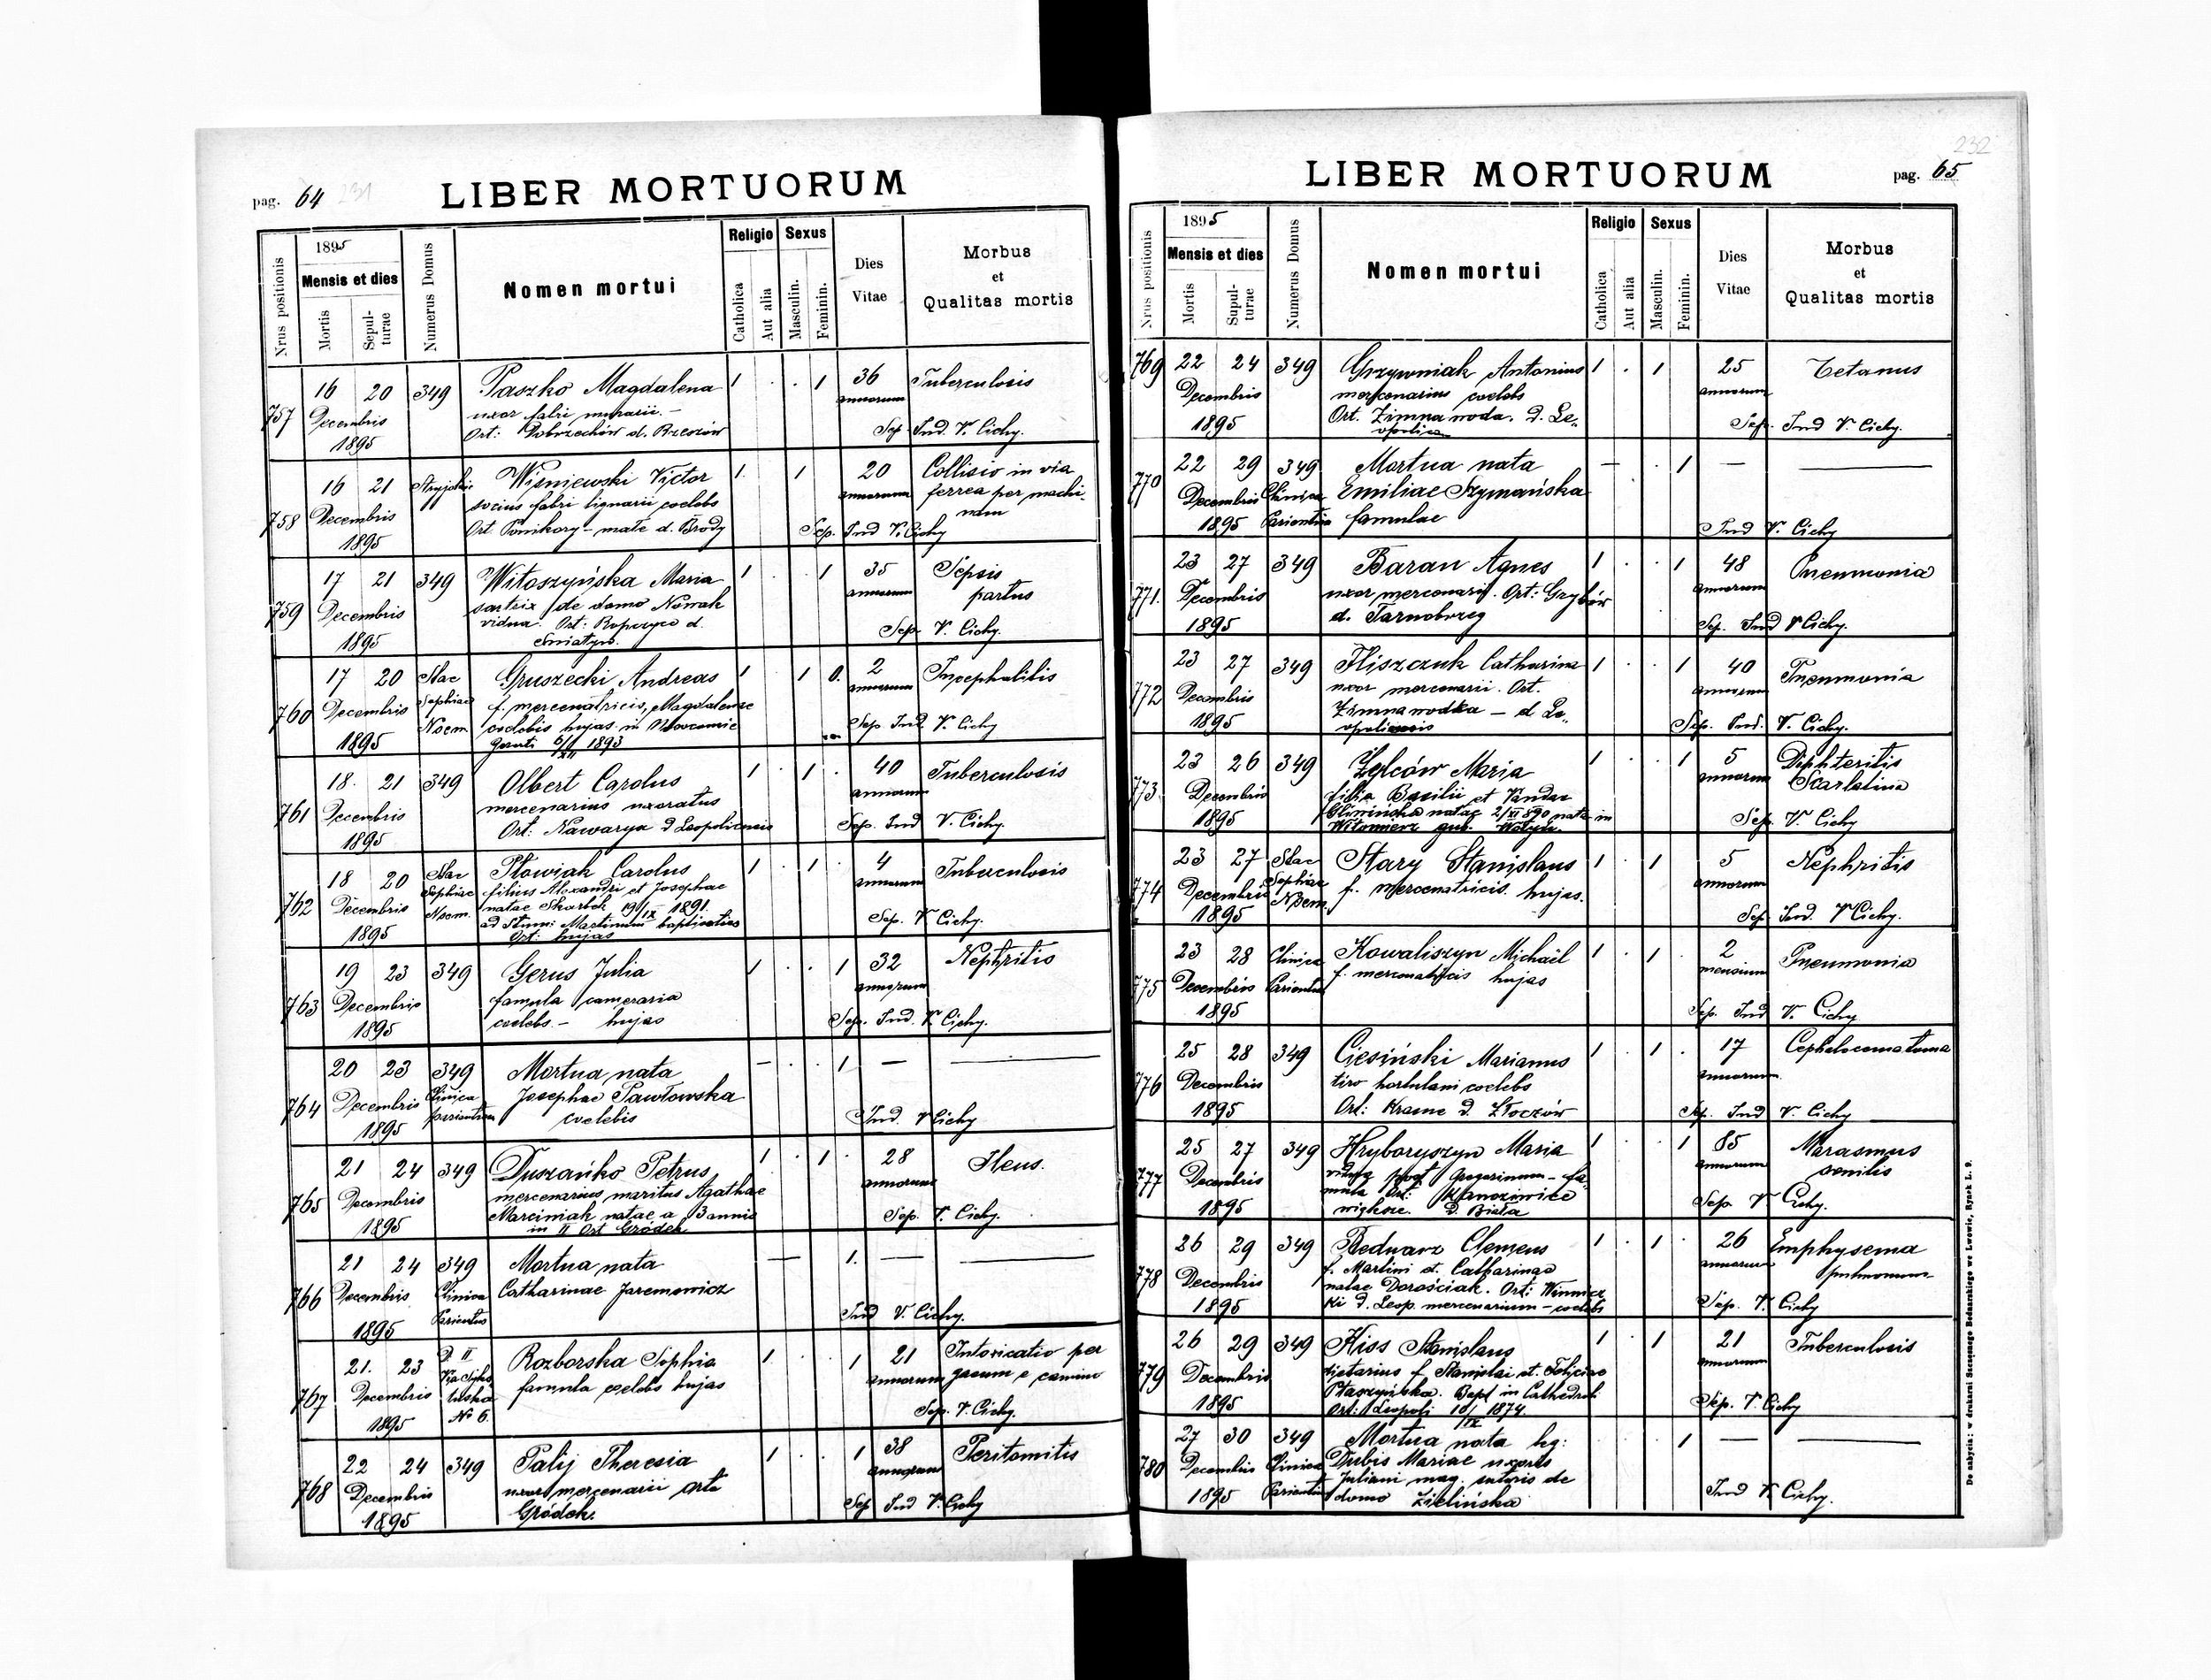 pag. 64 231
LIBER MORTUORUM
Nrus positionis
1895
Mensis et dies
Mortis
Sepul-
turae
Numerus Domus
Nomen mortui
Religio
Catholica
Aut alia
Sexus
Masculin.
Feminin.
Dies
Vitae
Morbus
et
Qualitas mortis
757 16 20 349 Paszko Magdalena 1 . . 1 36 Tuberculosis
Decembris uxor fabri murarii. - annorum
1895 Ort: Dobrzechów d. Rzeszów Sep Ind. V. Cichy.
758 16 21 Stryjskie Wiśniewski Victor 1. 1 20 Collisio in via
Decembris socius fabri lignarii coelebs annorum ferrea per machi-
nam
1895 Ort. Ponikowy-małe d. Brody Sep. Ind V. Cichy
759 17 21 349 Witoszyńska Maria 1 . . 1 35 Sepsis
Decembris sartrix de domo Nowak annorum partus
1895 vidua. Ort: Ropczyce d. Sep. V. Cichy.
Śniatyn.
760 17 20 Stae Gruszecki Andreas 1 1 0. 2 Encephalitis
Decembris Sophiae f. mercenatricis, Magdalenae annorum
1895 Noem coelebis hujas in Sep Ind V. Cichy
1893
761 18. 21 349 Olbert Carolus 1 . 1 . 40 Tuberculosis
Decembris mercenarius uxoratus annorum
1895 Ort: Nawarya d Leopoliensis Sep. Ind V. Cichy.
762 18 20 Stae Pławiak Carolus 1 . 1 . 4 Tuberculosis
Decembris Sophiae filius Alexandri et Josephae annorum
1895 Noem. natae Skarbek 19/IX 1891.
ad Stum: Martinum baptisatus Sep. V. Cichy.
Ort: hujas
763 19 23 349 Gerus Julia 1 . . 1 32 Nephritis
Decembris famula cameraria annorum
1895 coelebs - hujas Sep. Ind. V. Cichy.
764 20 23 349 Mortua nata — . . 1 — —
Decembris Clinica Josephae Pawłowska
1895 parientium coelebis Ind. V Cichy
765 21 24 349 Duszańko Petrus 1 . 1 . 28 Ileus.
Decembris mercenarius maritus Agathae annorum
1895 Marciniak natae a 3 annis Sep. V. Cichy.
in Ort Gródek
766 21 24 349 Mortua nata — 1. — —
Decembris Clinica Catharinae Jaremowicz
1895 Parientus Ind V. Cichy.
767 21. 23 P. II Rozborska Sophia 1. 1 21 Intoxicatio per
Decembris famula coelebs hujas annorum gasum e camino
1895 No 6. Sep. V. Cichy.
768 22 24 349 Palij Theresia 1 . . 1 38 Peritomitis
Decembris uxor mercenarii orta annorum
1895 Gródek. Sep Ind V. Cichy
232
LIBER MORTUORUM
pag. 65
Nrus positionis
1895
Mensis et dies
Mortis
Supul-
turae
Numerus Domus
Nomen mortui
Religio
Catholica
Aut alia
Sexus
Masculin.
Feminin.
Dies
Vitae
Morbus
et
Qualitas mortis
769 22 24 349 Grzywniak Antonius 1 . 1 25 Tetanus
Decembris mercenarius coelebs annorum
1895 Ort. Zimna woda. D. Le- Sep. Ind V. Cichy.
770 22 29 349 Mortua nata — . 1 — —
Decembris Clinica Emiliae Szymańska
1895 Parientium famulae Ind V. Cichy
771. 23 27 349 Baran Agnes 1 . . 1 48 Pneumonia
Decembris uxor mercenarii. Ort: Grybów annorum
1895 d. Tarnobrzeg Sep. Ind V Cichy.
772 23 27 349 Fliszczuk Catharina 1 . . 1 40 Pneumonia
Decembris uxor mercenarii. Ort. annorum
1895 Zimna wodka — d Le- Sep. Ind. V. Cichy.
opoliensis
773 23 26 349 Maria 1 . . 1 5 Diphteritis
Decembris filia Basilii et Vandae annorum Scarlatina
1895 natae 2/XI 890 nata in
gub. Wołyn. Sep V. Cichy
774 23 27 Stae Stary Stanislaus 1 . 1 5 Nephritis
Decembris Sophiae f. mercenatricis hujas. annorum
1895 Noem. Sep. Ind. V Cichy.
775 23 28 Clinica Kowaliszyn Michaël 1 . 1 . 2 Pneumonia
Decembris Parientium f. mercenatricis hujas mensium
1895 Sep. Ind V. Cichy
776 25 28 349 Ciesiński Marianus 1 . 1 . 17
Decembris tiro hortulani coelebs annorum
1895 Ort: Krasne D. Złoczów Sep. Ind V. Cichy
777 25 27 349 Hryboryszyn Maria 1 . . 1 85 Marasmus
Decembris vidua post Gregorium - fa- annorum senilis
1895 mula Ort: Sep. V. Cichy.
większe. D. Biała
778 26 29 349 Bednarz Clemens 1 . 1 . 26 Emphysema
Decembris f. Martini et Catharinae annorum pulmonum
1895 natae Dorościak. Ort: Winnicz
ki D. Leop. mercenarium - coelebs Sep. V. Cichy
779 26 29 349 Kiss Stanislaus 1 . 1 21 Tuberculosis
Decembris f Stanislai et Feliciae annorum
1895 Ptaszyńska. Bapt in Cathedrali
Ort: Leopoli 10/IX 1874. Sep. V Cichy
780 27 30 349 Mortua nata leg: 1 — —
Decembris Clinica Dubis Mariae uxoris
1895 Parientium Juliani mag. sutoris de
domo Zielińska Ind V. Cichy.
Do nabycia: w drukarni Szczęsnego Bednarskiego we Lwowie, Rynek L. 9.